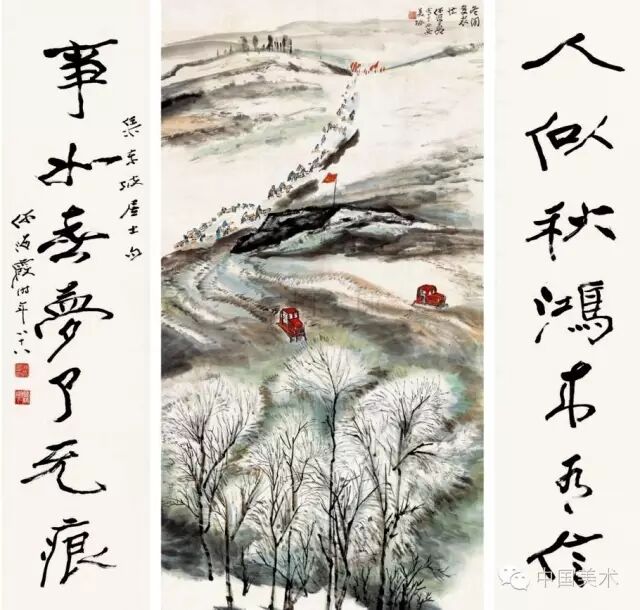 人似秋鴻来有信
事如春夢了无痕
集东坡居士句
何海霞时年八十八
中国美术